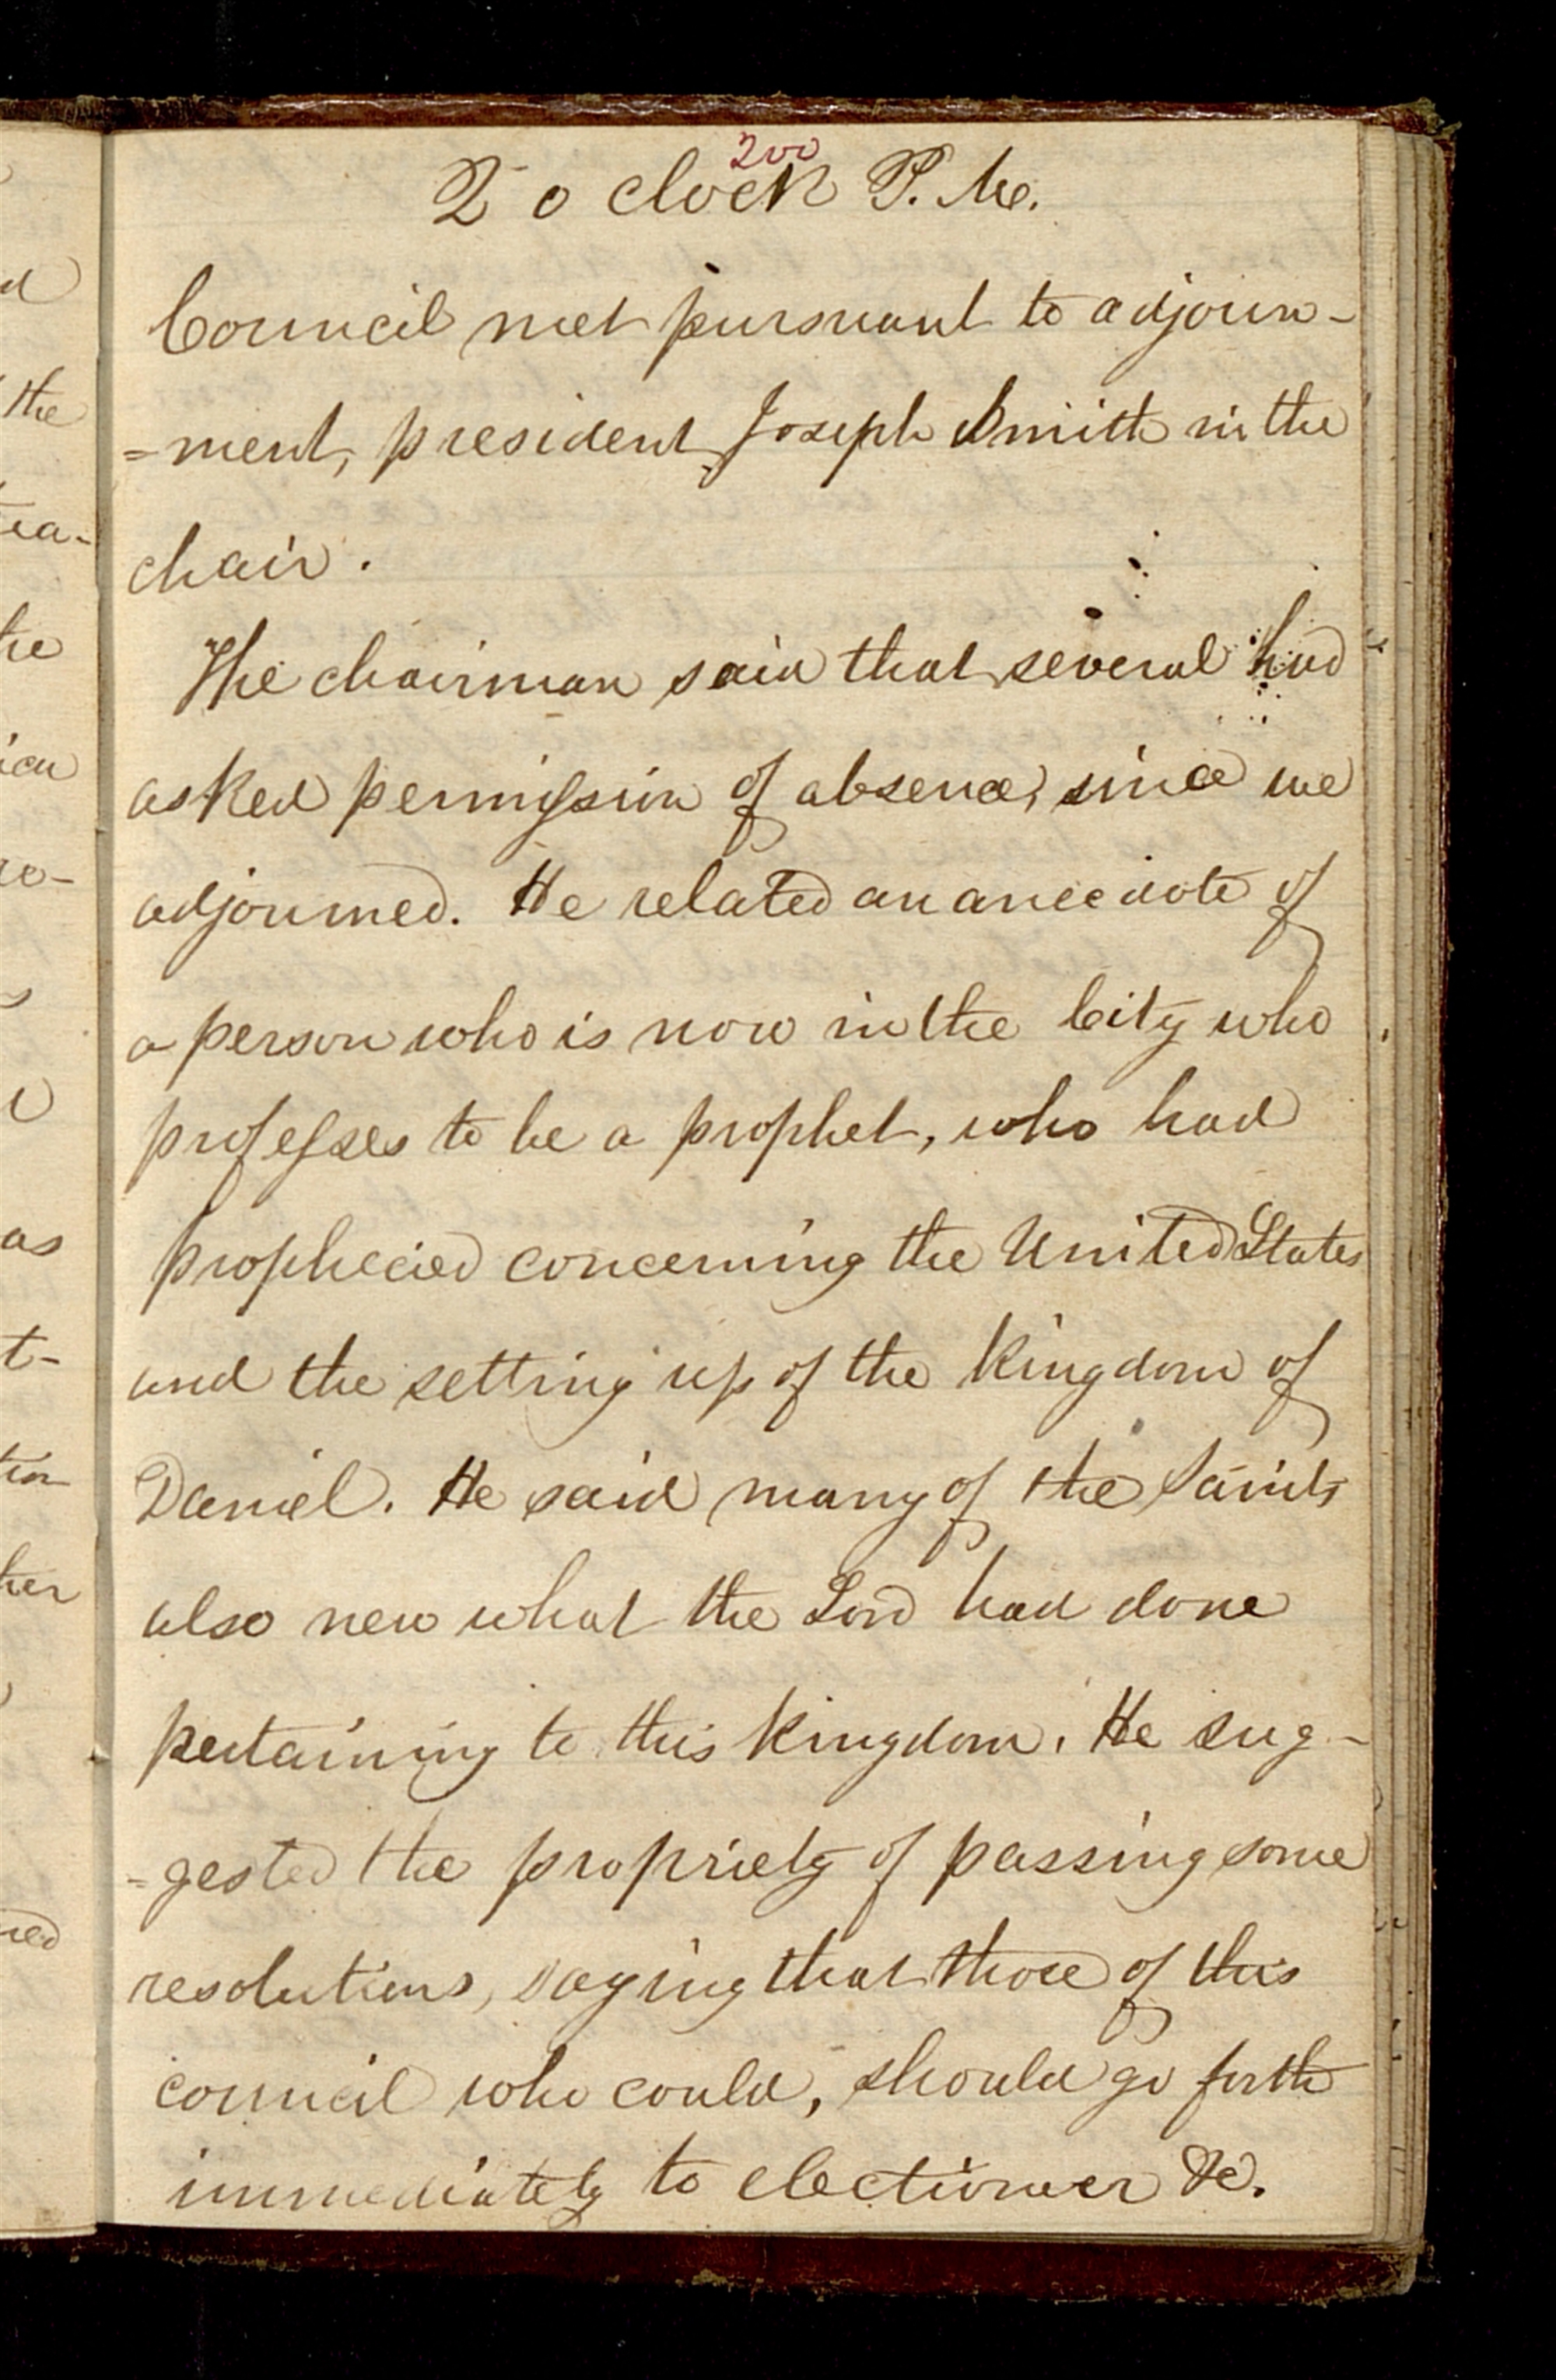 200
2 o clock P. M.
Council met pursuant to adjourn-
=ment, president Joseph Smith in the
chair.
The chairman said that several had
asked permission of absence, since we
adjourned. He related an anecdote of
a person who is now in the City who
professes to be a prophet, who had
prophecied concerning the United States
and the setting up of the Kingdom of
Daniel. He said many of the Saints
also new what the Lord had done
pertaining to this Kingdom. He sug-
=gested the propriety of passing some
resolutions, saying that those of this
council who could, should go forth
immediately to electioneer &c.
d
the
he
as
t-
her